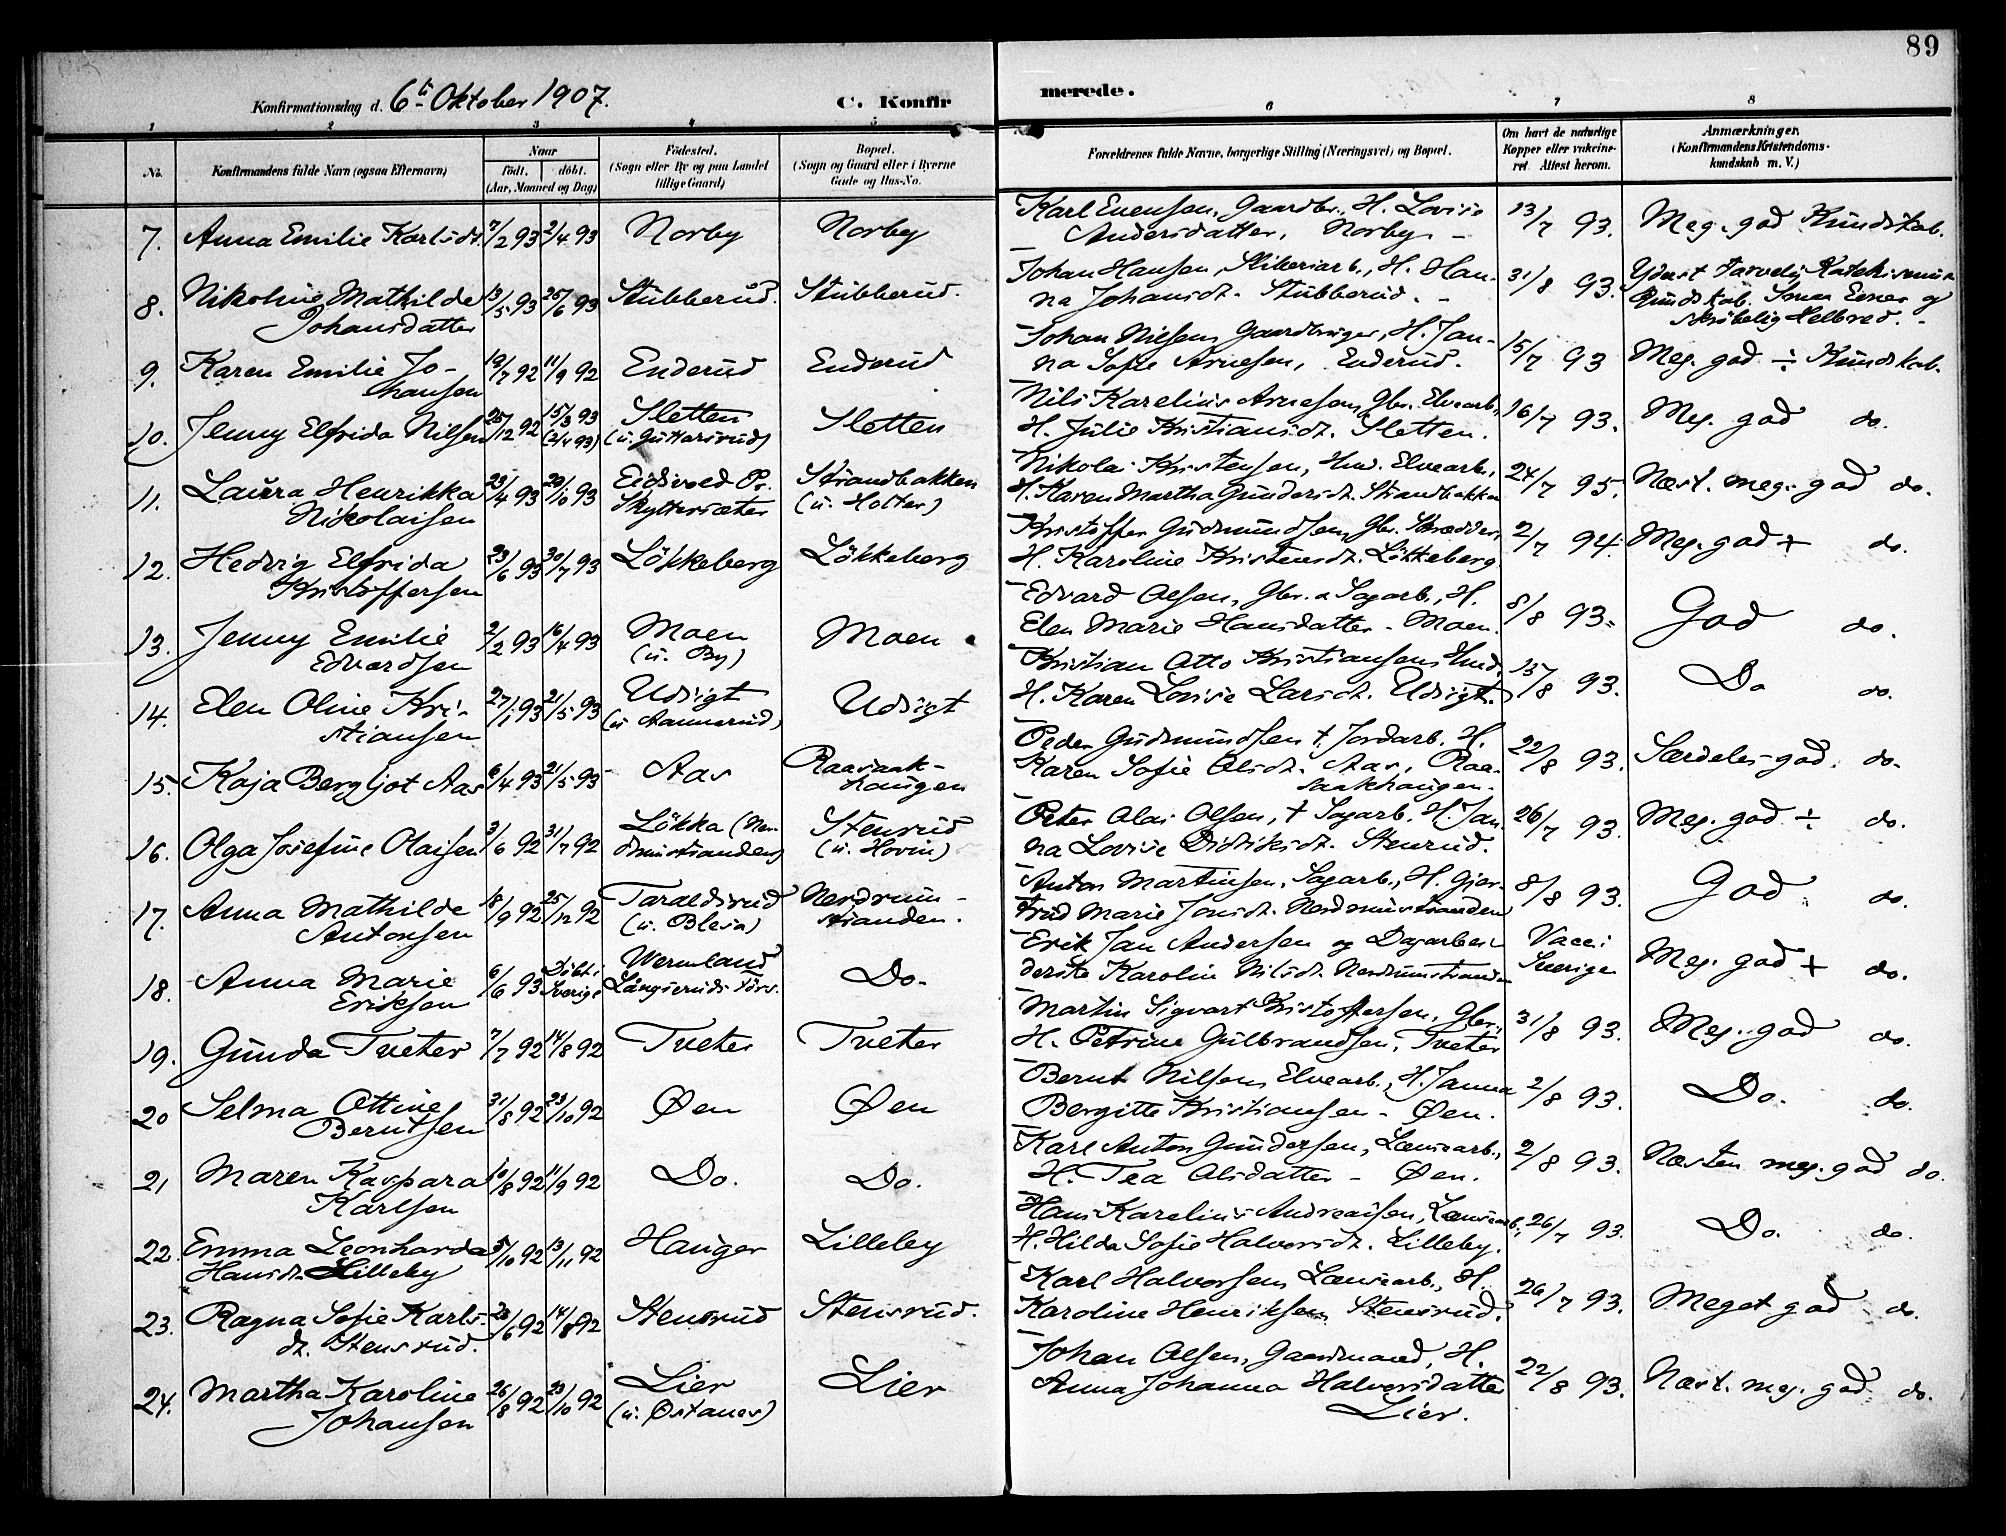 89
Konfirmationsdag d. 6te Oktober 1907.
C. Konfirmerede.
1 2 3 4 5 6 7 8
No.
Konfirmandens fulde Navn (ogsaa Efternavn)
Naar
født. døbt.
(Aar, Maaned og Dag)
Fødested.
(Sogn eller By og paa Landet
tillige Gaard)
Bopæl.
(Sogn og Gaard eller i Byerne
Gade og Hus-No.
Forældrenes fulde Navne, borgerlige Stilling (Næringsvei) og Bopæl.
Om havt de naturlige
Kopper eller vakcine-
ret Attest herom.
Anmærkninger,
(Konfirmandens Kristendoms-
kundskab m. V.)
7. Anna Emilie Karlsdt. 7/2 93 2/4 93 Norby Norby Karl Evensen, Gaardbr., H. Lovise
Andersdatter, Norby. 13/7 93. Meg. god Kundskab.
8. Nikoline Mathilde
Johansdatter 13/5 93 25/6 93 Stubberud. Stubberud. Johan Hansen, Sliberiarb., H. Han-
na Johansdt. Stubberud. 31/8 93. Yderst tarvelig Katekismus
Kundskab. Smaa Evner og
skrøbelig Helbred.
9. Karen Emilie Jo-
hansen 19/7 92 11/9 92 Enderud Enderud Johan Nilsen, Gaardbruger, H. Jan-
na Sofie Arnesen, Enderud. 15/7 93 Meg. god ÷ Kundskab.
10. Jenny Elfrida Nilsen 25/12 92 15/3 93
(2/4 93) Sletten
(u. Guttersrud) Sletten Nils Karelius Arnesen, Gbr. Elvearb.,
H. Julie Kristiansdt. Sletten. 16/7 93. Meg. god do.
11. Laura Henrikka
Nikolaisen 23/4 93 29/10 93 Eidsvold Pr.
Skyttersæter Strandbakken
(u. Holter) Nikolai Kristensen, Hmd. Elvearb.,
H. Karen Martha Gundersdt. Strandbakken 24/7 95. Næst. meg. god do.
12. Hedvig Elfrida
Kristoffersen 23/6 93 30/7 93 Løkkeberg Løkkeberg Kristoffer Gudmundsen, Gbr. Skrædder,
H. Karoline Kristensdt. Løkkeberg. 2/7 94. Meg. god + do.
13. Jenny Emilie
Edvardsen 2/2 93 16/4 93 Moen
(u. By) Moen Edvard Olsen, Gbr. & Sagarb., H.
Elen Marie Hansdatter - Moen. 8/8 93. God do.
14. Elen Oline Kri-
stiansen 27/1 93 21/5 93 Udsigt
(u. Aamerud) Udsigt Kristian Otto Kristiansen, Hmd,
H. Karen Lovise Larsdt. Udsigt. 15/8 93. Do do.
15. Kaja Bergljot Aas 6/4 93 21/5 93 Aas Raasaak-
haugen Peder Gudmundsen †, Jordarb. H.
Karen Sofie Olsdt. Aas, Raa-
saakhaugen. 22/8 93. Særdeles god. do.
16. Olga Josefine Olaisen 3/6 92 31/7 92 Løkka (Ner-
drumstranden) Stenrud
(u. Hovin) Peter Olai Olsen, † Sagarb. H. Jan-
na Lovise Didriksdt. Stenrud. 26/7 93. Meg. god ÷ do.
17. Anna Mathilde
Antonsen 18/9 92 25/12 92 Taraldsrud
(u. Blesa) Nerdrum-
stranden. Anton Martinsen, Sagarb., H. Gjer-
trud Marie Jonsdt. Nerdrumstranden 8/8 93. God do.
18. Anna Marie
Eriksen 6/6 93 Døbt i
Sverige Wermland
Långseruds förs. Do. Erik Jan Andersen og Dagarbei-
derske Karolin Nilsdt. Nerdrumstranden Vacc. i
Sverige Meg. god + do.
19. Gunda Tveter 7/7 92 14/8 92 Tveter Tveter Martin Sigvart Kristoffersen, Gbr.,
H. Petrine Gulbrandsen, Tveter 31/8 93. Meg. god do.
20 Selma Ottine
Berntsen 31/8 92 23/10 92 Øen Øen Bernt Nilsen, Elvearb., H. Janna
Bergitte Kristiansen - Øen. 2/8 93. Do. do.
21 Maren Kaspara
Karlsen 10/8 92 11/9 92 Do. Do. Karl Anton Gundersen, Lænsearb.,
H. Tea Olsdatter - Øen. 2/8 93. Næsten meg. god do.
22. Emma Leonharda
Hansdt. Lilleby 5/10 92 13/11 92 Hauger Lilleby Hans Karelius Andreassen, Lænsearb.,
H. Hilda Sofie Halvorsdt. Lilleby. 26/7 93. Do. do.
23. Ragna Sofie Karls-
dt. Stensrud. 23/6 92 14/8 92 Stensrud Stensrud. Karl Halvorsen, Lænsearb., H.
Karoline Henriksen Stensrud. 26/7 93. Meget god do.
24. Martha Karoline
Johansen 26/8 92 23/10 92 Lier
(u. Østanes) Lier Johan Olsen, Gaardmand, H.
Anna Johanna Halvorsdatter
Lier. 22/8 93. Næst. meg. god do.